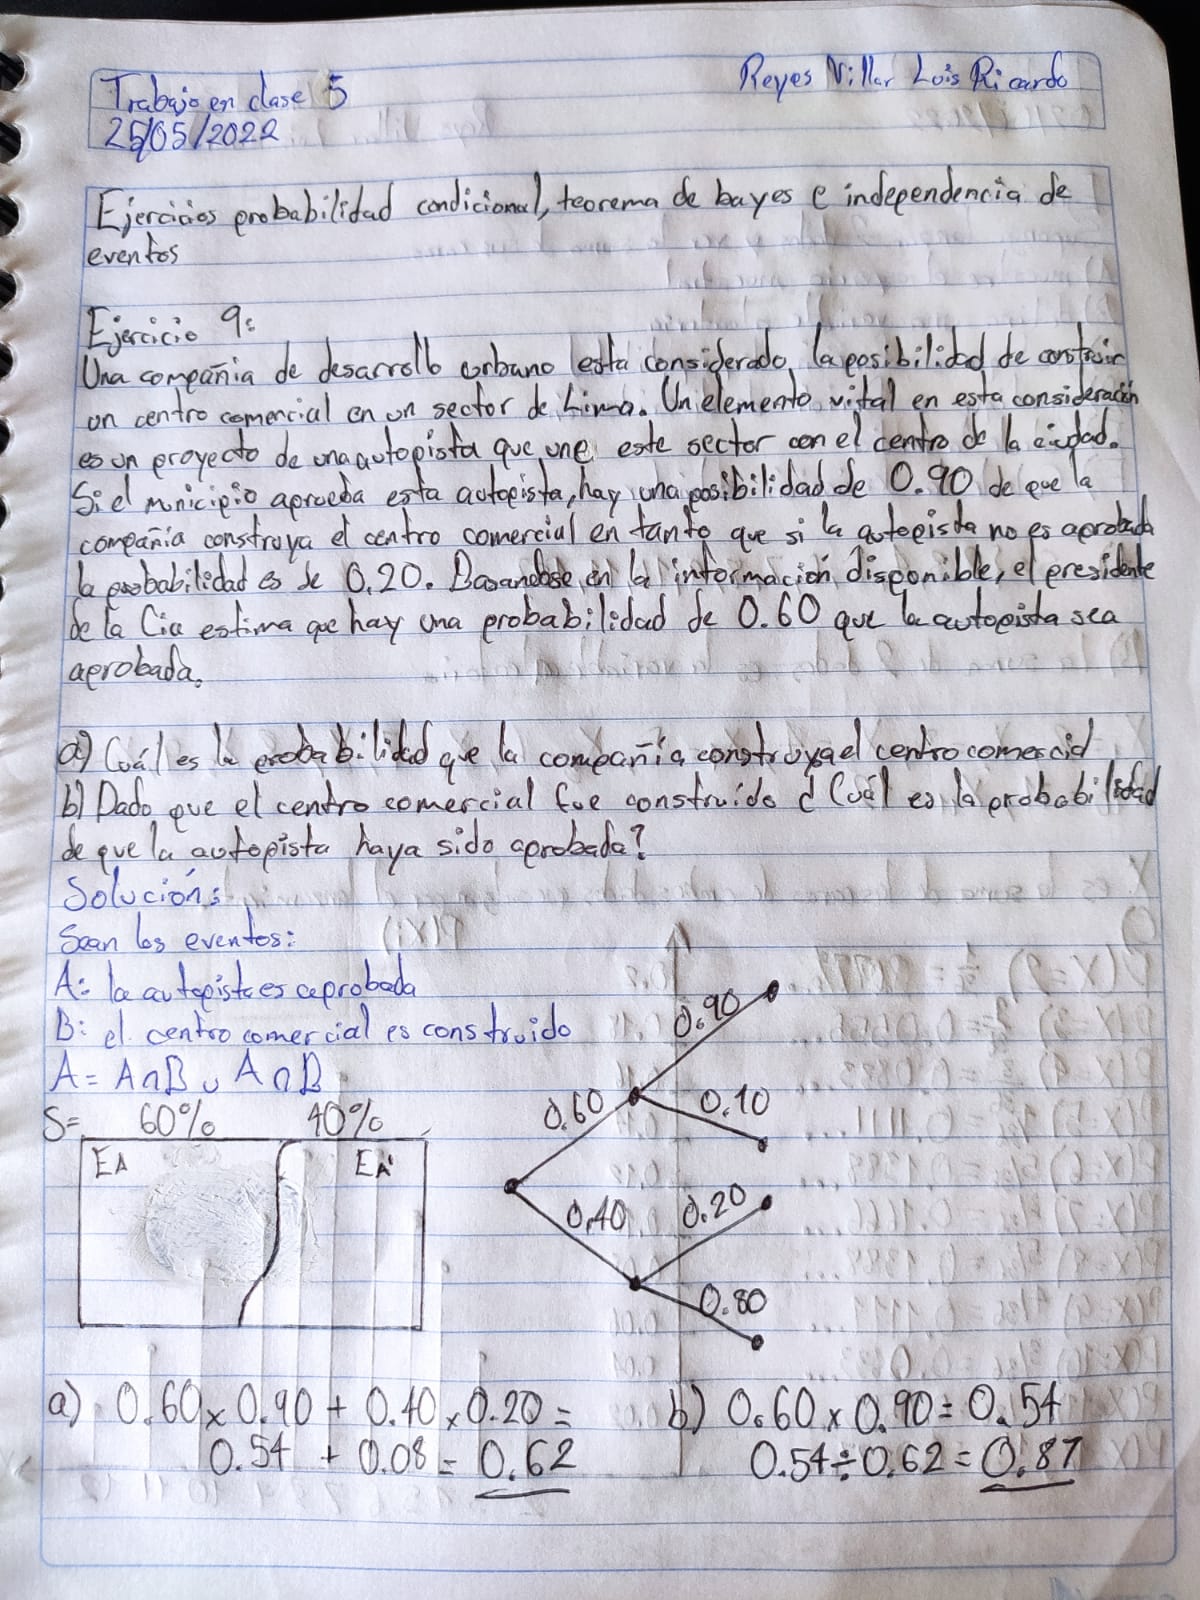 Trabajo en clase 5
Reyes Villar Luis Ricardo
25/05/2022
Ejercicios probabilidad condicional, teorema de bayes e independencia de
eventos
Ejercicio 9:
Una compañia de desarrollo urbano esta considerado la posibilidad de construir
un centro comercial en un sector de Lima. Un elemento vital en esta consideración
es un proyecto de una autopista que une este sector con el centro de la ciudad.
Si el municipio aprueba esta autopista, hay una posibilidad de 0.90 de que la
compañia construya el centro comercial en tanto que si la autopista no es aprobada
la probabilidad es de 0.20. Basandose en la información disponible, el presidente
de la Cia estima que hay una probabilidad de 0.60 que la autopista sea
aprobada.
a) Cuál es la probabilidad que la compañia construya el centro comercial
b) Dado que el centro comercial fue construido ¿Cuál es la probabilidad
de que la autopista haya sido aprobada?
Solución:
Sean los eventos:
A: la autopista es aprobada
B: el centro comercial es construido
A = A∩B ∪ A∩B
S= 60% 40%
EA EA'
0.90
0.60 0.10
0.40 0.20
0.80
a) 0.60 x 0.90 + 0.40 x 0.20 =
0.54 + 0.08 = 0.62
b) 0.60 x 0.90 = 0.54
0.54 ÷ 0.62 = 0.87